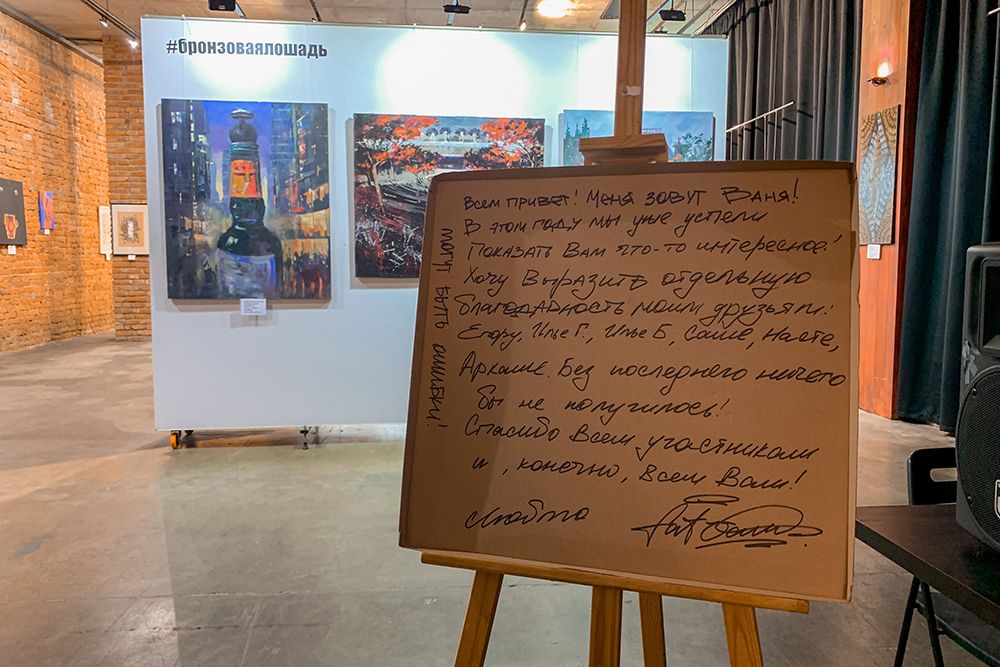 #бронзоваялошадь
Всем привет! Меня зовут Ваня!
В этом году мы уже успели
Показать Вам что-то интересное!
Хочу Выразить отдельную
благодарность моим друзьям:
Егору, Илье Г., Илье Б, Саше, Насте,
Аркаше. Без последнего ничего
бы не получилось!
Спасибо Всем участникам
и, конечно, Всем Вам!
могут быть ошибки!